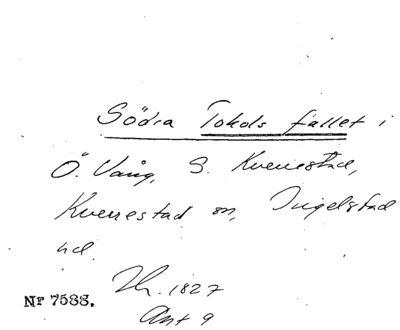 Södra Tokds fallet i
Ö. Vång, S. Kverrestad,
Kverrestad sn, Ingelstad
hd.
Lh. 1827
Akt 9
Nr 7588.